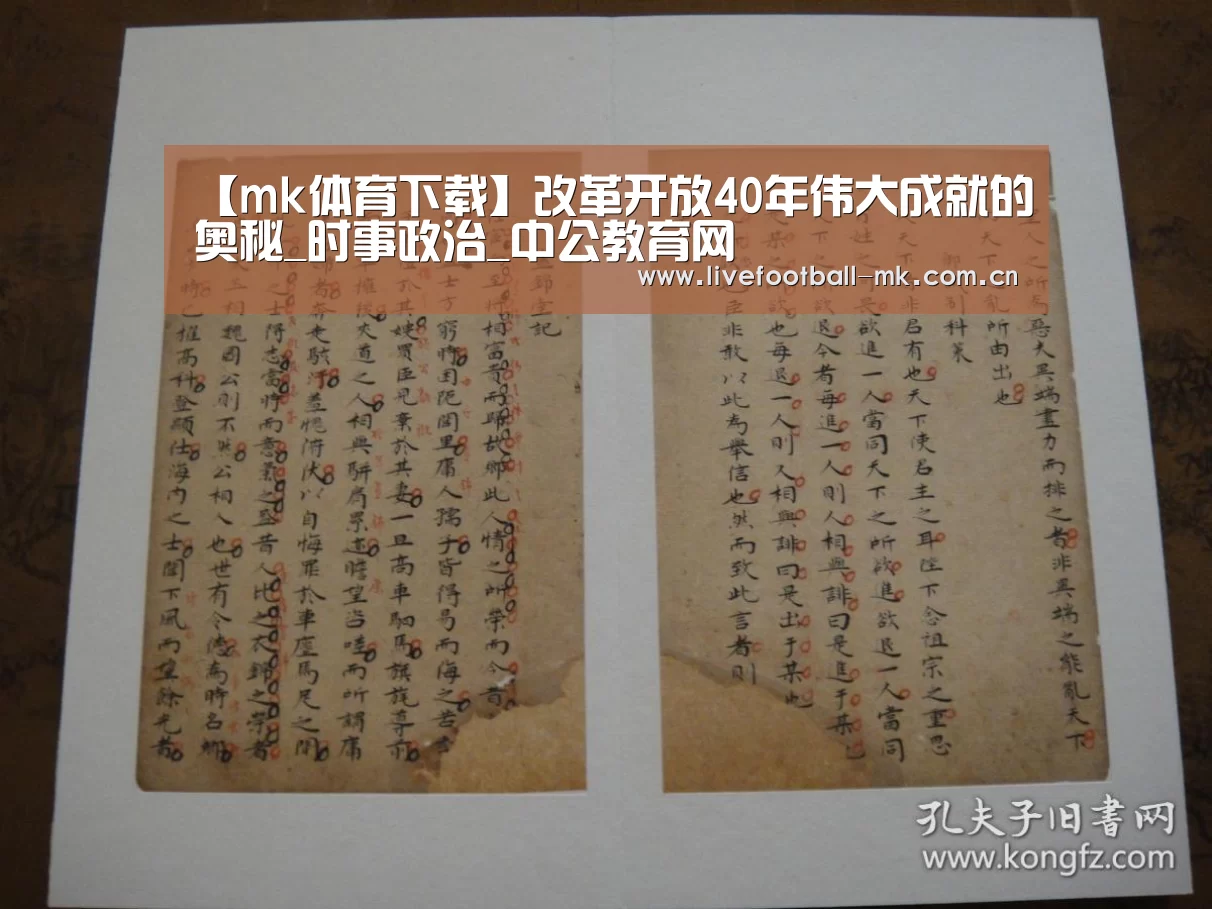 【mk体育下载】改革开放40年伟大成就的
奥秘_时事政治_中公教育网
www.livefootball-mk.com.cn
人之所為惡夫異端盡力而排之者非異端之能亂天下
天下亂所由出也
科策
天下非君有也天下使君主之耳陛下念祖宗之重思
姓之畏欲進一人當同天下之所欲進欲退一人當同
下之欲退今者每進一人則人相與誹曰是進于某也
某之欲也每退一人則又相與誹曰是出于某也
臣非敢以此為舉信也然而致此言者則
堂記
至將相富貴而歸故鄉此人情之所榮而今昔
士方窮時困阨閭里庸人孺子皆得易而侮之若
於其嫂買臣見棄於其妻一旦高車駟馬旗旄導前
擁後夾道之人相與駢肩累迹瞻望咨嗟而所謂庸
者奔走駭汗羞愧俯伏以自悔罪於車塵馬足之間
之士得志當時而意氣之盛昔人比之衣錦之榮者
丞相魏國公則不然公相人也世有令德為時名卿
時已擢高科登顯仕海內之士聞下風而望餘光者
孔夫子旧书网
www.kongfz.com